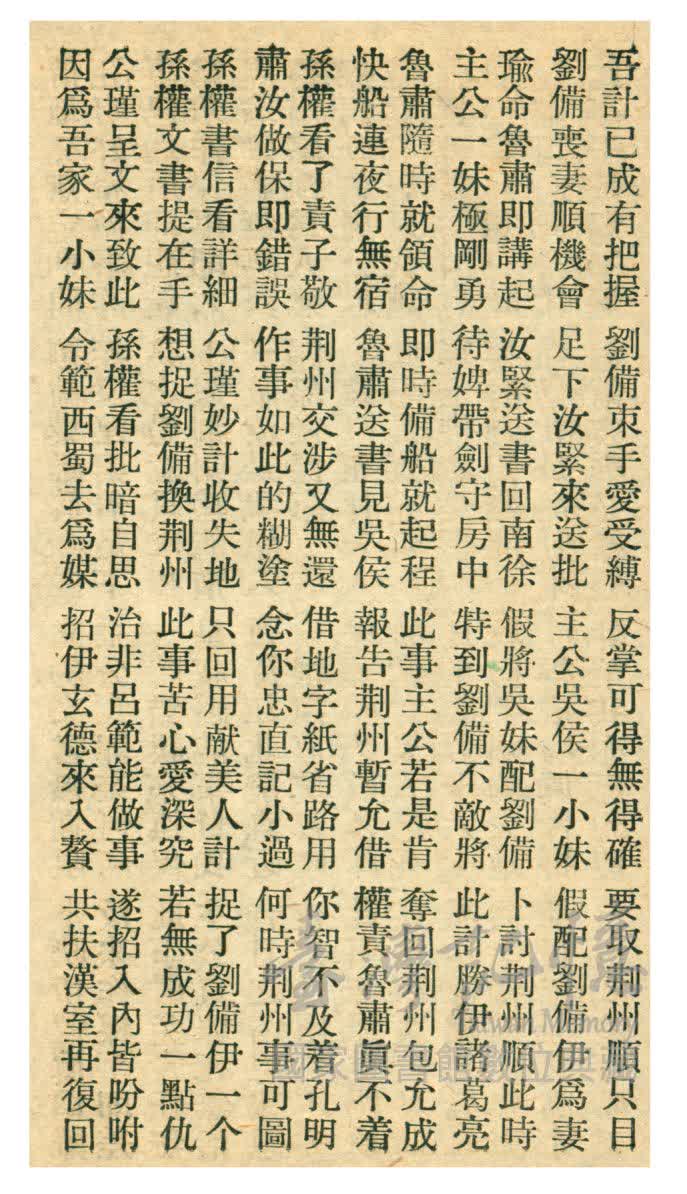 吾計已成有把握 劉備束手愛受縛 反掌可得無得確 要取荆州順只目
劉備喪妻順機會 足下汝緊來送批 主公吳侯一小妹 假配劉備伊爲妻
瑜命魯肅即講起 汝緊送書回南徐 假將吳妹配劉備 卜討荆州順此時
主公一妹極剛勇 待婢帶劍守房中 特到劉備不敵將 此計勝伊諸葛亮
魯肅隨時就領命 即時備船就起程 此事主公若是肯 奪回荆州包允成
快船連夜行無宿 魯肅送書見吳侯 報告荆州暫允借 權責魯肅眞不着
孫權看了責子敬 荆州交涉又無還 借地字紙省路用 你智不及着孔明
肅汝做保即錯誤 作事如此的糊塗 念你忠直記小過 何時荆州事可圖
孫權書信看詳細 公瑾妙計收失地 只回用献美人計 捉了劉備伊一个
孫權文書提在手 想捉劉備換荆州 此事苦心愛深究 若無成功一點仇
公瑾呈文來致此 孫權看批暗自思 治非呂範能做事 遂招入內皆吩咐
因爲吾家一小妹 令範西蜀去爲媒 招伊玄德來入贅 共扶漢室再復回
臺灣記憶
Taiwan Memory
國家圖書館數位典藏